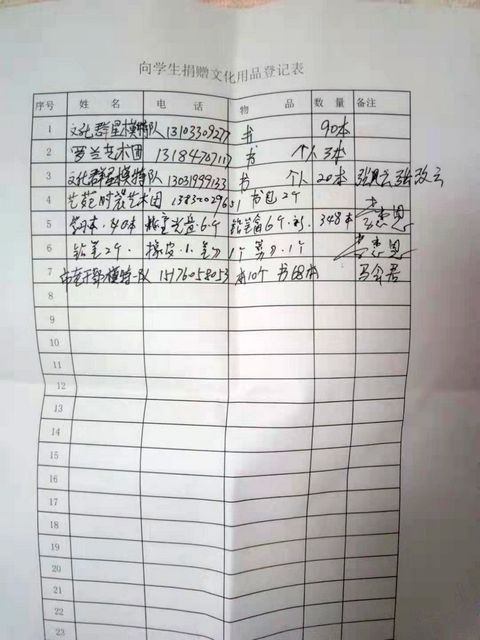 向学生捐赠文化用品登记表
序号 姓名 电话 物品 数量 备注
1 文化群星模特队 13103309277 书 90本
2 罗兰艺术团 13184707117 书 个人 3本
3 文化群星模特队 13031999133 书 个人 20本
4 艺苑时装艺术团 13832029651 书包2个
5 840本 光盘6个 铅笔6个 348本
6 铅笔2个 橡皮 1个 1个
7 模特队 15176058053 本10个 书 本 马会君
8
9
10
11
12
13
14
15
16
17
18
19
20
21
22
23